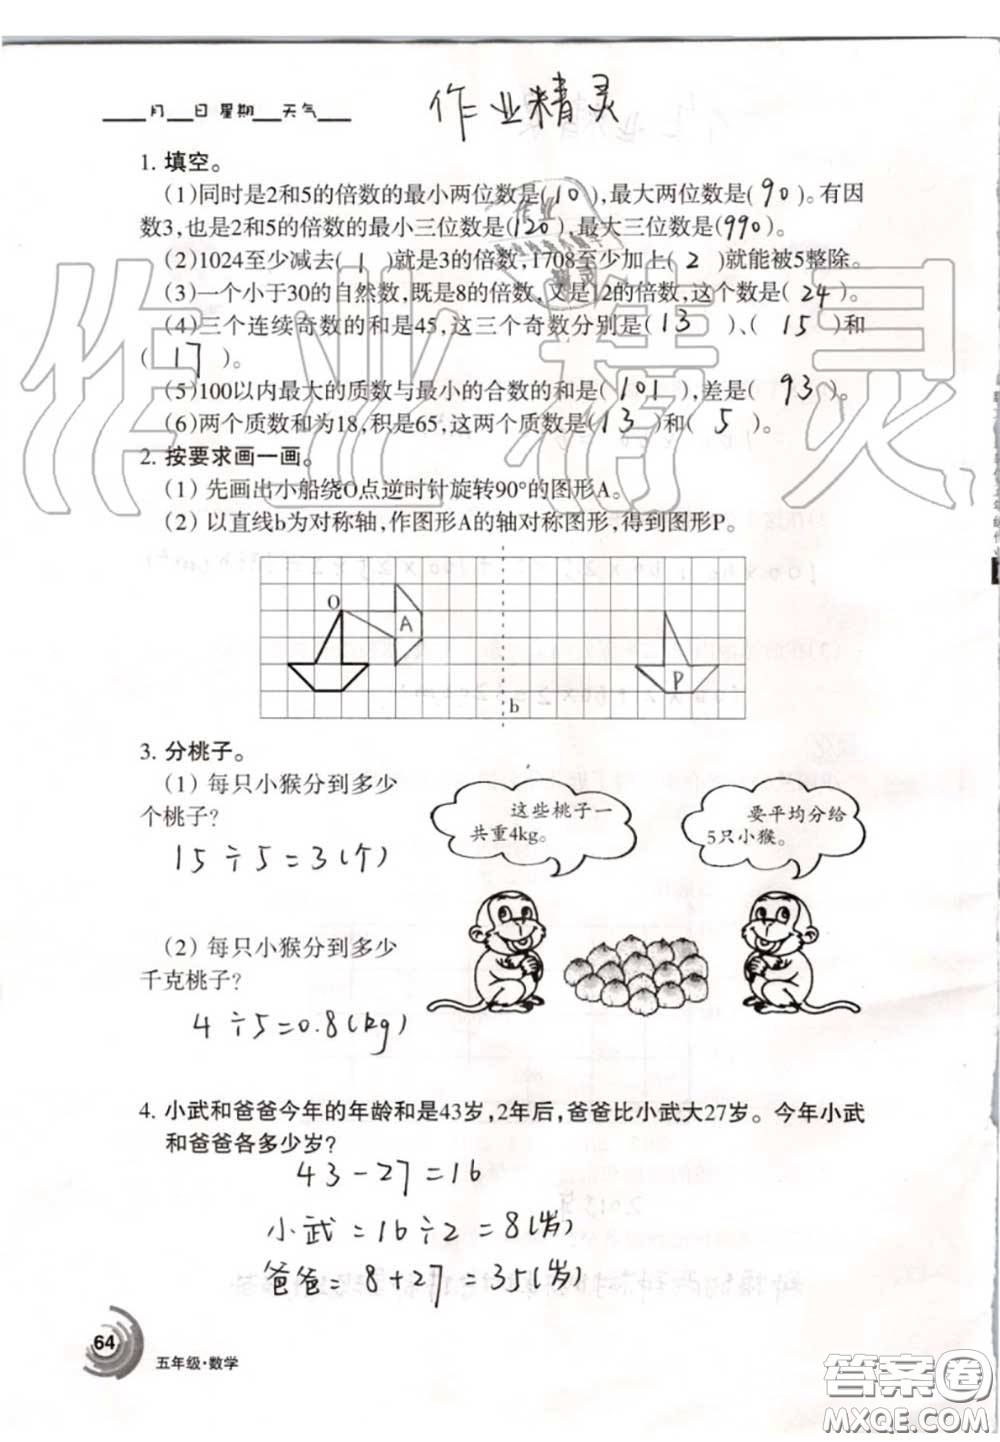 ___月___日 星期___天气___
作业精灵
1. 填空。
(1)同时是2和5的倍数的最小两位数是( 10 ),最大两位数是( 90 )。有因
数3,也是2和5的倍数的最小三位数是(120),最大三位数是(990)。
(2)1024至少减去( 1 )就是3的倍数,1708至少加上( 2 )就能被5整除。
(3)一个小于30的自然数,既是8的倍数,又是12的倍数,这个数是( 24 )。
(4)三个连续奇数的和是45,这三个奇数分别是( 13 )、( 15 )和
( 17 )。
(5)100以内最大的质数与最小的合数的和是( 101 ),差是( 93 )。
(6)两个质数和为18,积是65,这两个质数是( 13 )和( 5 )。
2. 按要求画一画。
(1) 先画出小船绕O点逆时针旋转90°的图形A。
(2) 以直线b为对称轴,作图形A的轴对称图形,得到图形P。
O
A
P
b
3. 分桃子。
(1) 每只小猴分到多少
个桃子?
15÷5=3(个)
这些桃子一
共重4kg。
要平均分给
5只小猴。
(2) 每只小猴分到多少
千克桃子?
4÷5=0.8(kg)
4. 小武和爸爸今年的年龄和是43岁,2年后,爸爸比小武大27岁。今年小武
和爸爸各多少岁?
43-27=16
小武=16÷2=8(岁)
爸爸=8+27=35(岁)
64
五年级·数学
作业精灵
答案圈
MXQE.COM